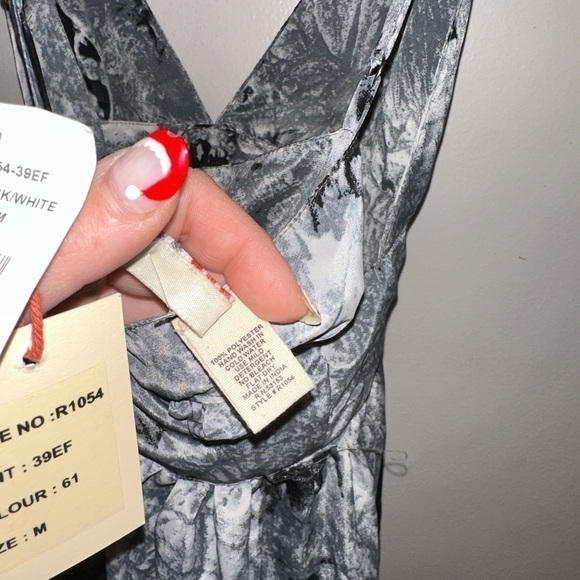 54-39EF
K/WHITE
M
E NO :R1054
NT : 39EF
LOUR : 61
ZE : M
100% POLYESTER
HAND WASH IN
COLD WATER
USE MILD
DETERGENT
NO BLEACH
FLAT DRY
MADE IN INDIA
R.N.58163
STYLE # R1054